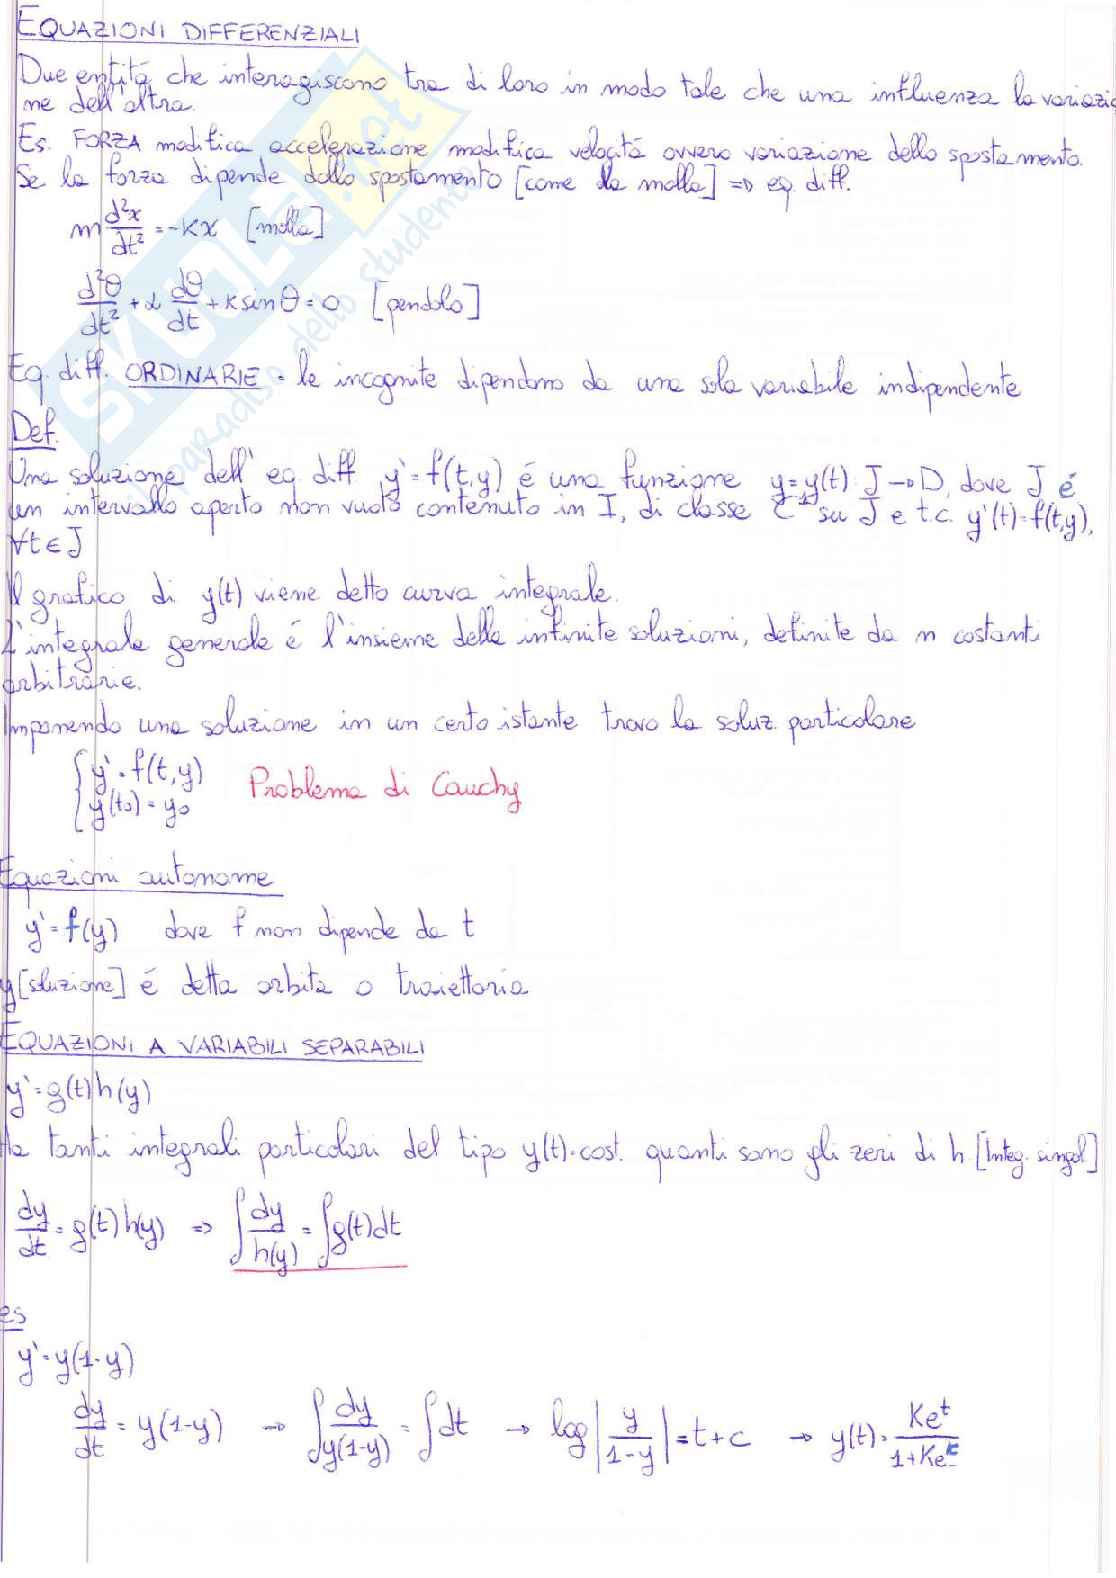 EQUAZIONI DIFFERENZIALI
Due entità che interagiscono tra di loro in modo tale che una influenza la variazio
ne dell'altra.
Es. FORZA modifica accelerazione modifica velocità ovvero variazione dello spostamento.
Se la forza dipende dallo spostamento [come la molla] => eq. diff.
m d²x/dt² = -Kx [molla]
d²θ/dt² + α dθ/dt + K sin θ = 0 [pendolo]
Eq. diff. ORDINARIE = le incognite dipendono da una sola variabile indipendente
Def.
Una soluzione dell'eq. diff y' = f(t,y) é una funzione y = y(t) J → D, dove J é
un intervallo aperto non vuoto contenuto in I, di classe C¹ su J e t.c. y'(t) = f(t,y),
∀t ∈ J
Il grafico di y(t) viene detto curva integrale.
L'integrale generale é l'insieme delle infinite soluzioni, definite da n costanti
arbitrarie.
Imponendo una soluzione in un certo istante trovo la soluz. particolare
{ y' = f(t,y)
y(t₀) = y₀ Problema di Cauchy
Equazioni autonome
y' = f(y) dove f non dipende da t
y [soluzione] é detta orbita o traiettoria
EQUAZIONI A VARIABILI SEPARABILI
y' = g(t)h(y)
Ha tanti integrali particolari del tipo y(t) = cost. quanti sono gli zeri di h [Integ. singol]
dy/dt = g(t)h(y) => ∫ dy/h(y) = ∫ g(t)dt
es
y' = y(1-y)
dy/dt = y(1-y) → ∫ dy/y(1-y) = ∫ dt → log |y/1-y| = t + c → y(t) = Ke^t/1+Ke^t
SKUOLA.net
il paradiso dello studente